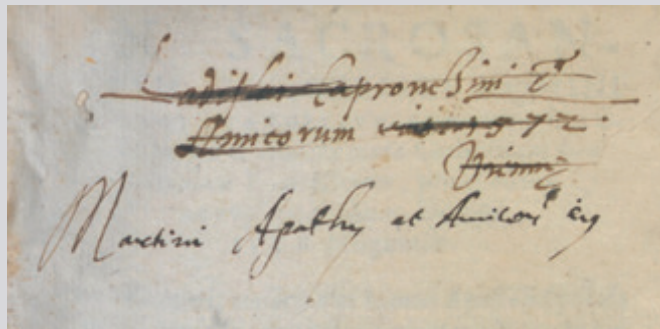 Ladislai Capronchini et
Amicorum 1572
Viennae
Martini Apathy et Amicor eius